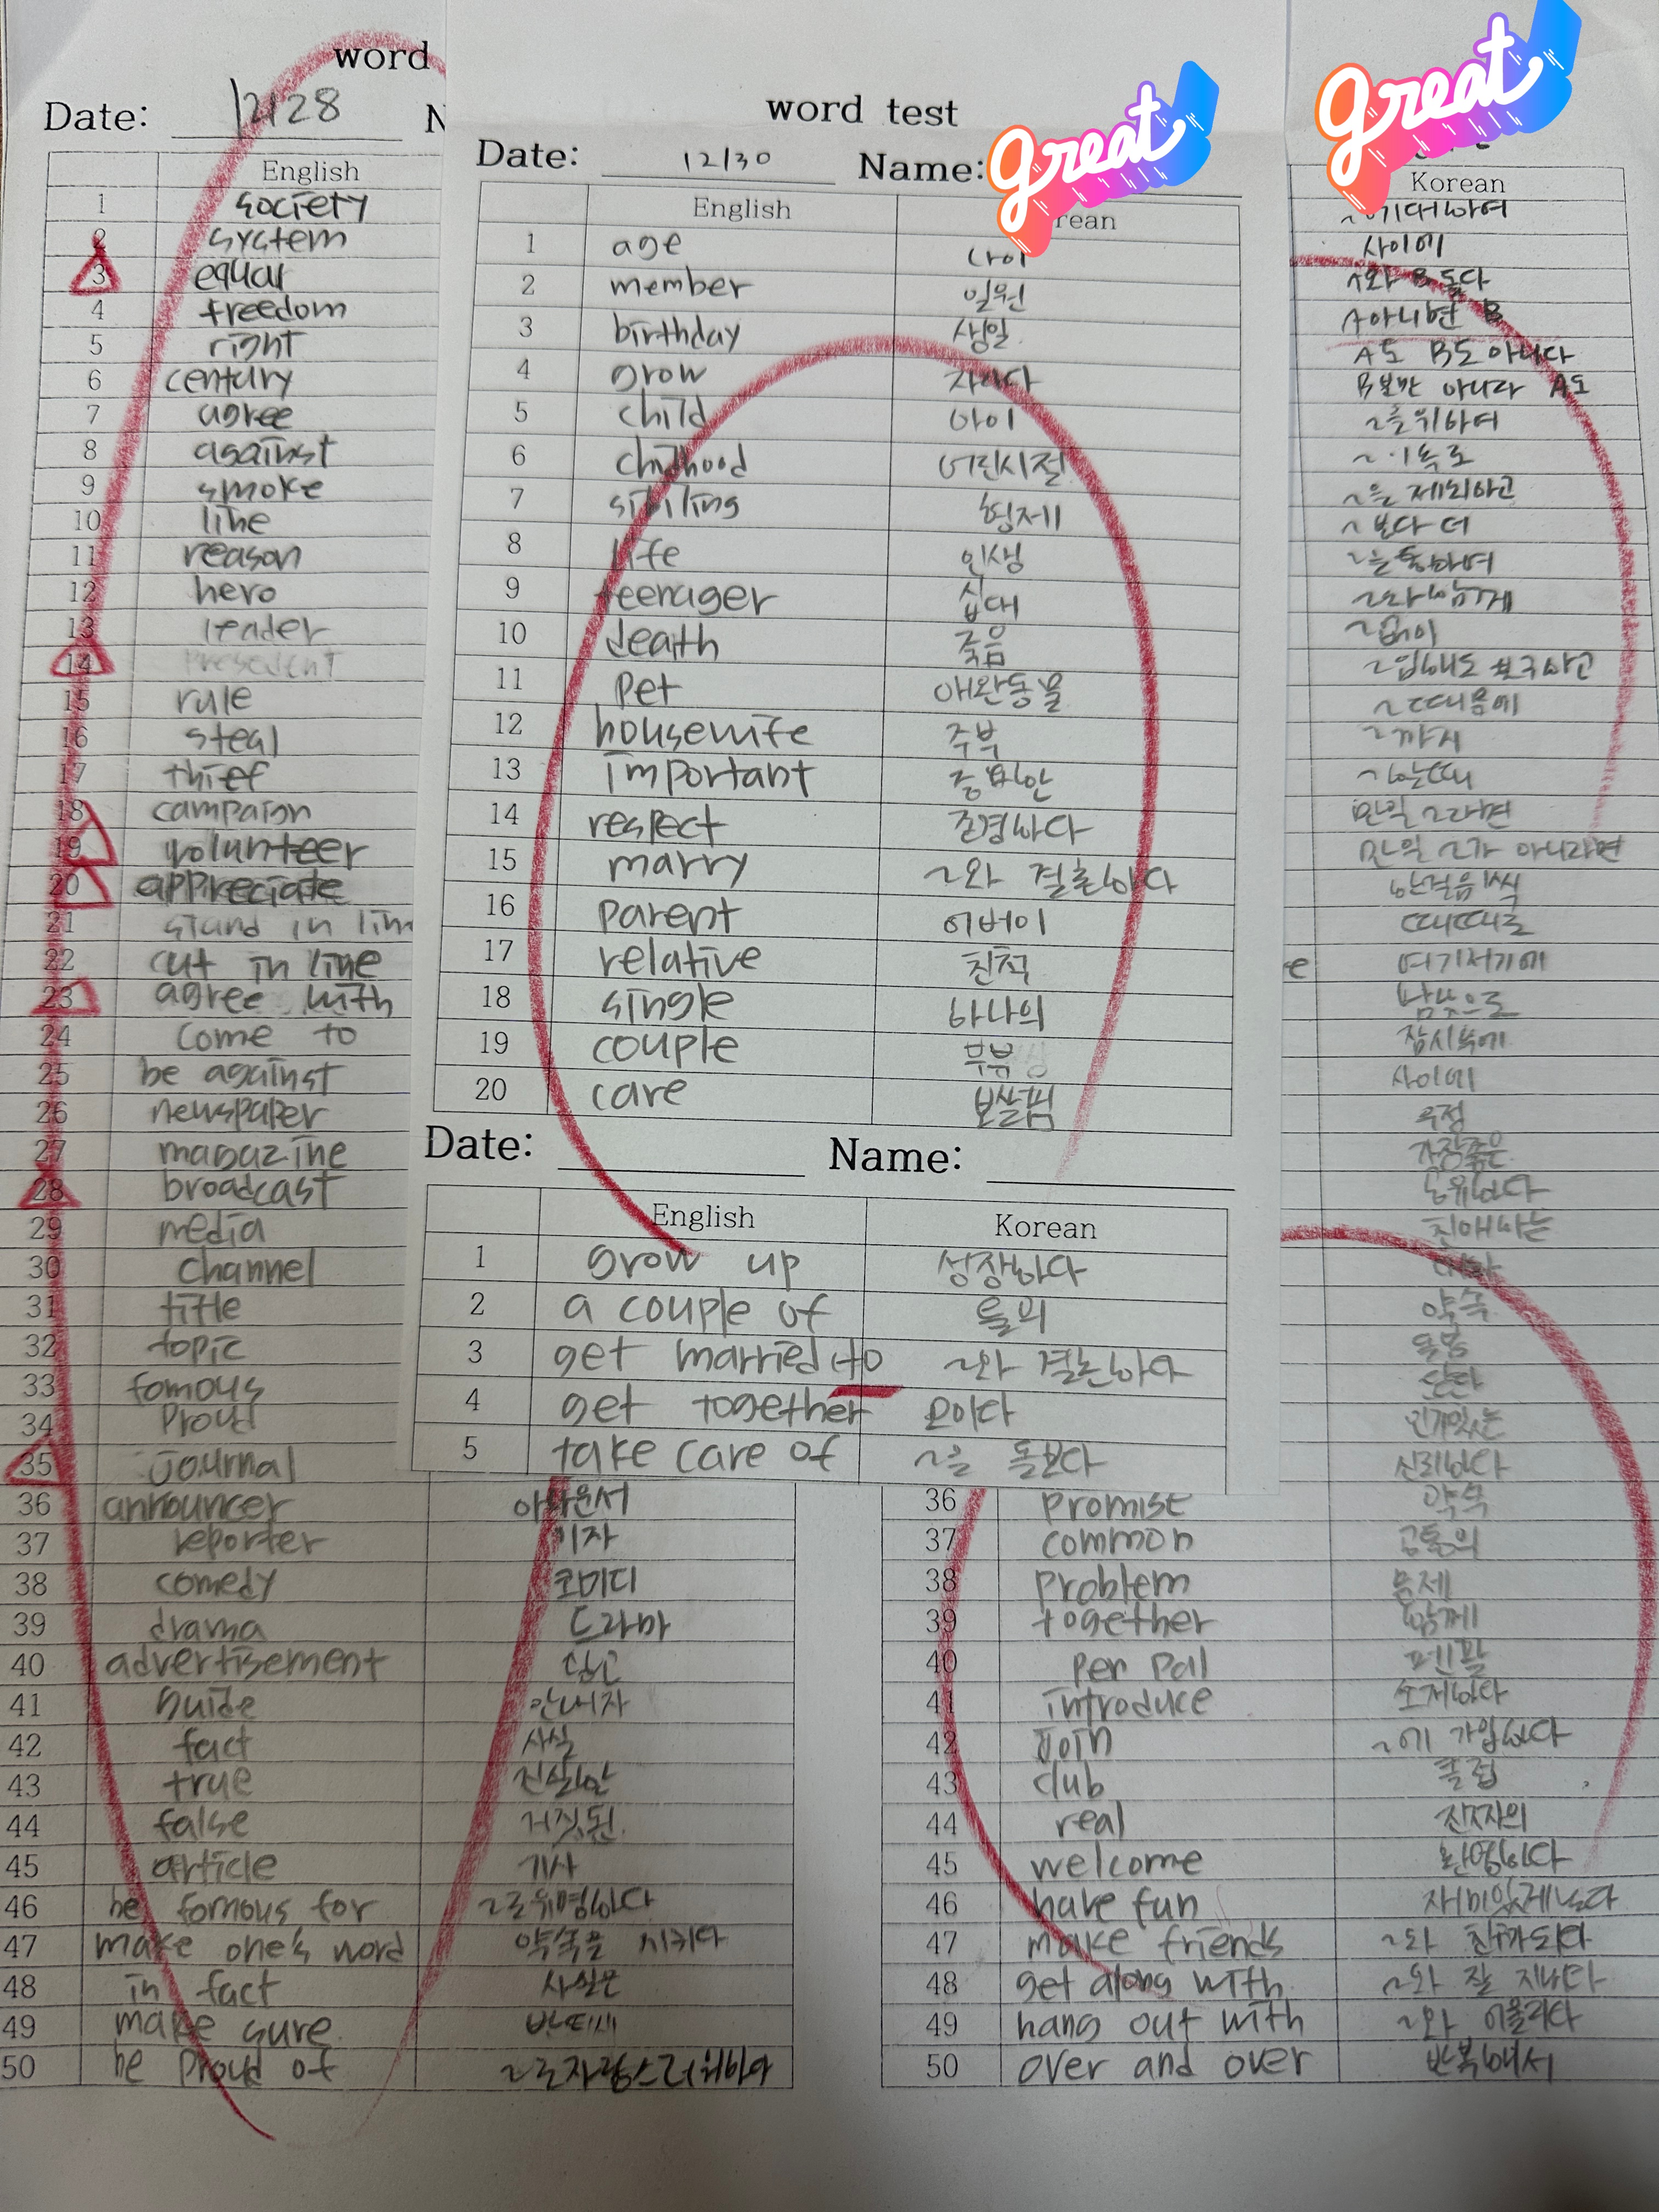 word
Date: 12/28 N
English
1 society
2 system
3 equar
4 freedom
5 right
6 century
7 agree
8 against
9 smoke
10 line
11 reason
12 hero
13 leader
14
15 rule
16 steal
17 thief
18 campaign
19 volunteer
20 appreciate
21 stand in lin
22 cut in line
23 agree with
24 come to
25 be against
26 newspaper
27 magazine
28 broadcast
29 media
30 channel
31 title
32 topic
33 fomous
34 proud
35 journal
36 announcer 아나운서
37 reporter 기자
38 comedy 코미디
39 drama 드라마
40 advertisement
41 guide 안내자
42 fact 사실
43 true 진실한
44 false 거짓된.
45 article 기사
46 be fomous for ~로 유명하다
47 make one's word 약속을 지키다
48 in fact 사실은
49 make sure. 반드시
50 be proud of ~로 자랑스러워하다
word test
Date: 12/30 Name:
great
English rean
1 age 나이
2 member 일원
3 birthday 생일
4 grow 자라다
5 child 아이
6 childhood 어린시절
7 sibling 형제
8 life 인생
9 teenager 십대
10 death 죽음
11 pet 애완동물
12 housewife 주부
13 important 중요한
14 respect 존경하다
15 marry ~와 결혼하다
16 parent 어버이
17 relative 친척
18 single 하나의
19 couple 부부
20 care 보살핌
Date: Name:
English Korean
1 grow up 성장하다
2 a couple of 둘의
3 get married to ~와 결혼하다
4 get together 모이다
5 take care of ~를 돌보다
great
Korean
~기대하여
사이에
A와 B 둘다
A아니면 B
A도 B도 아니다
B뿐만 아니라 A도
~를위하여
~을 제외하고
~보다 더
~을통하여
~와함께
~없이
~임에도 불구하고
~때문에
~까지
~할때
만일 ~라면
만일 ~가 아니라면
한걸음씩
때때로
e 여기저기에
밤낮으로
잠시후에
사이에
우정
가장좋은
공유하다
친애하는
약속
인기있는
신뢰하다
36 promise 약속
37 common 공통의
38 problem 문제
39 together 함께
40 pen pal 펜팔
41 introduce 소개하다
42 join ~에 가입하다
43 club 클럽
44 real 진짜의
45 welcome 환영하다
46 have fun 재미있게놀다
47 make friends ~와 친구가되다
48 get along with ~와 잘 지내다
49 hang out with ~와 어울리다
50 over and over 반복해서